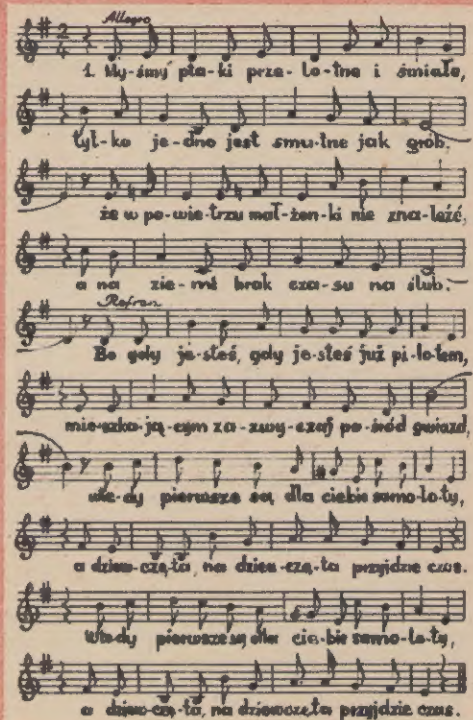 Allegro
2
4
1. My-śmy pta-ki prze-lo-tne i śmiałe,
tyl-ko je-dno jest smu-tne jak grób:
że w po-wie-trzu mał-żon-ki nie zna-leźć,
a na zie-mi brak cza-su na ślub.
Refren
Bo gdy je-steś, gdy je-steś już pi-lotem,
mie-szka-ją-cym za-zwy-czaj po-śród gwiazd,
wte-dy pierwsze są dla ciebie samo-lo-ty,
a dziew-czę-ta, na dziew-czę-ta przyjdzie czas.
Wtedy pierwsze są dla cie-bie samo-lo-ty,
a dziew-czę-ta, na dziewczęta przyjdzie czas.